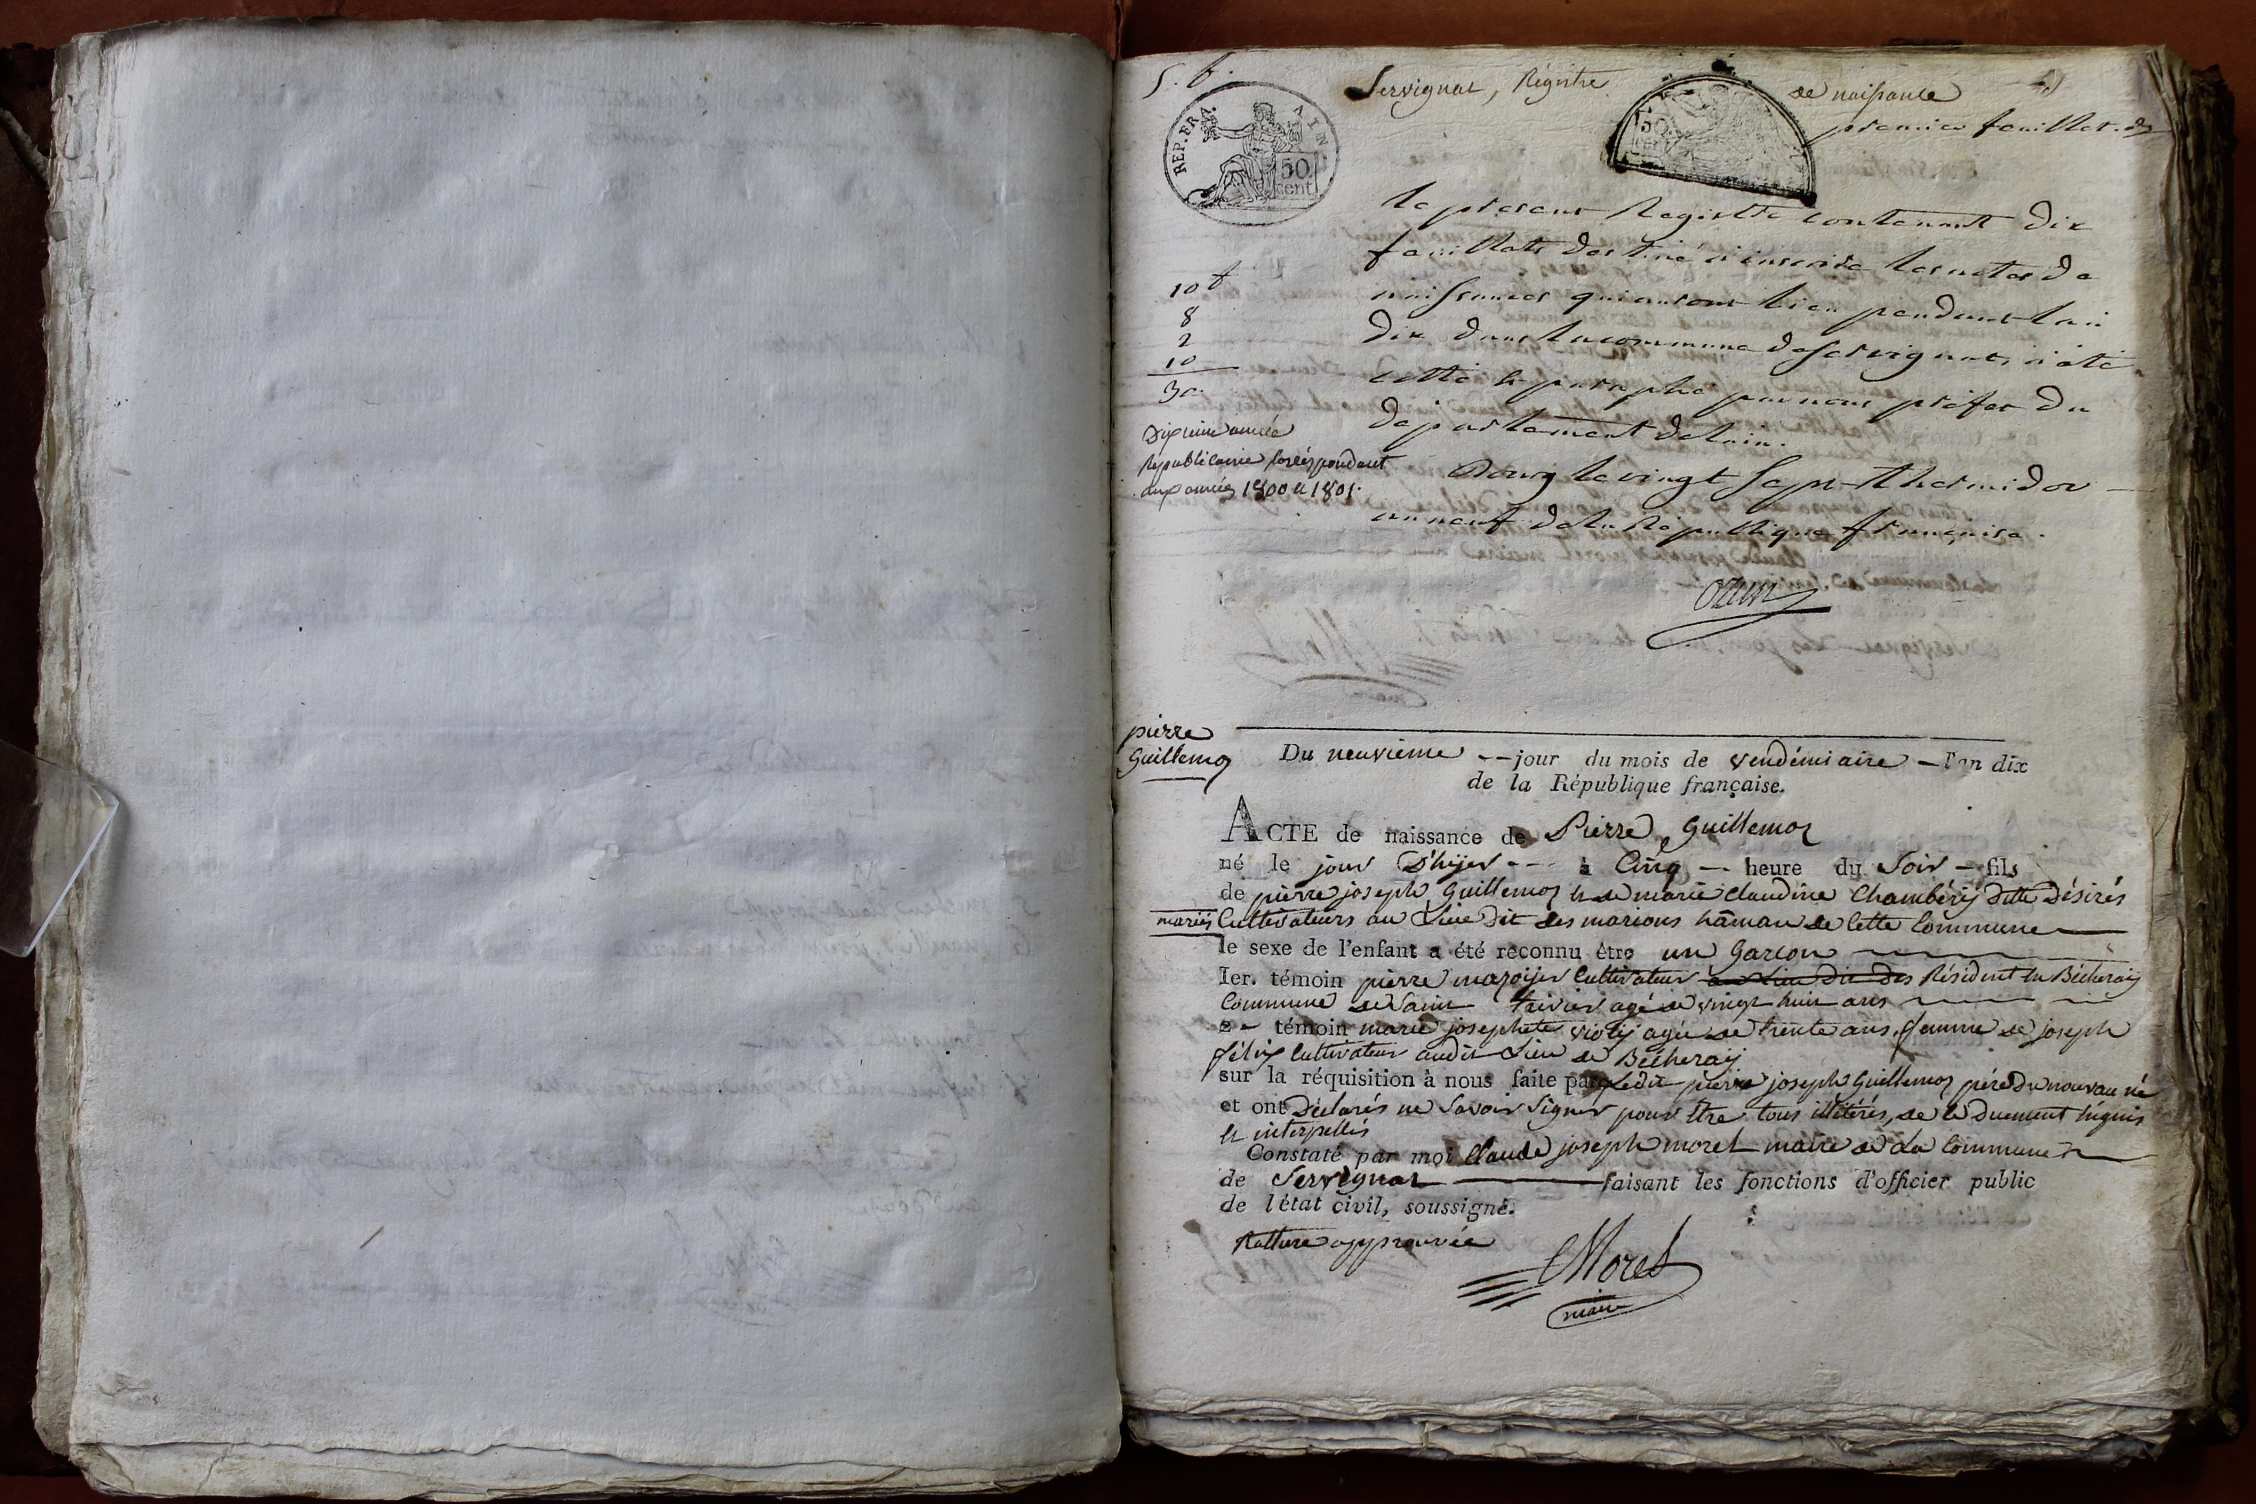 S. b.
Servignat, Régistre de naissance
premier feuillet.
REP. FRA. AIN.
50
cent
50
le present Registre contenant dix
feuillets destiné à inscrire les actes de
naissances qui auront lieu pendant l'an
dix dans la commune de Servignat, a été
cotté et paraphé par nous préfet du
département de l'ain.
Bourg le vingt sept thermidor
an neuf de la République française.
Ozun
10 f
8
2
10
30.
Dixieme année
Republicaine correspondant
aux années 1800 et 1801.
pierre
Guillemoz
Du neuvieme -- jour du mois de vendémiaire - l'an dix
de la République française.
ACTE de naissance de Pierre Guillemoz
né le jour d'hijer --- à Cinq -- heure du Soir - fils
de pierre joseph Guillemoz et de marie Claudine Chambérÿ ditte Désirés
mariés Cultivateurs au Lieu dit des marions hâmau de Cette Commune
le sexe de l'enfant a été reconnu être un Garcon
Ier. témoin pierre mazoijer Cultivateur au Lieu dit des Résident en Bécheraij
Commune de Saint trivier agé de vingt huit ans
2e témoin marie josephete violij agée de trente ans, femme de joseph
félix Cultivateur audit Lieu de Bécheraij
sur la réquisition à nous faite par Ledit pierre joseph Guillemoz pére du nouvau né
et ont Déclarés ne Savoir Signer pour être tous illitérés, de ce duement réquis
et interpellés
Constaté par moi Claude joseph morel maire de La Commune
de Servignat faisant les fonctions d'officier public
de l'état civil, soussigné.
Ratture approuvée
Morel
maire